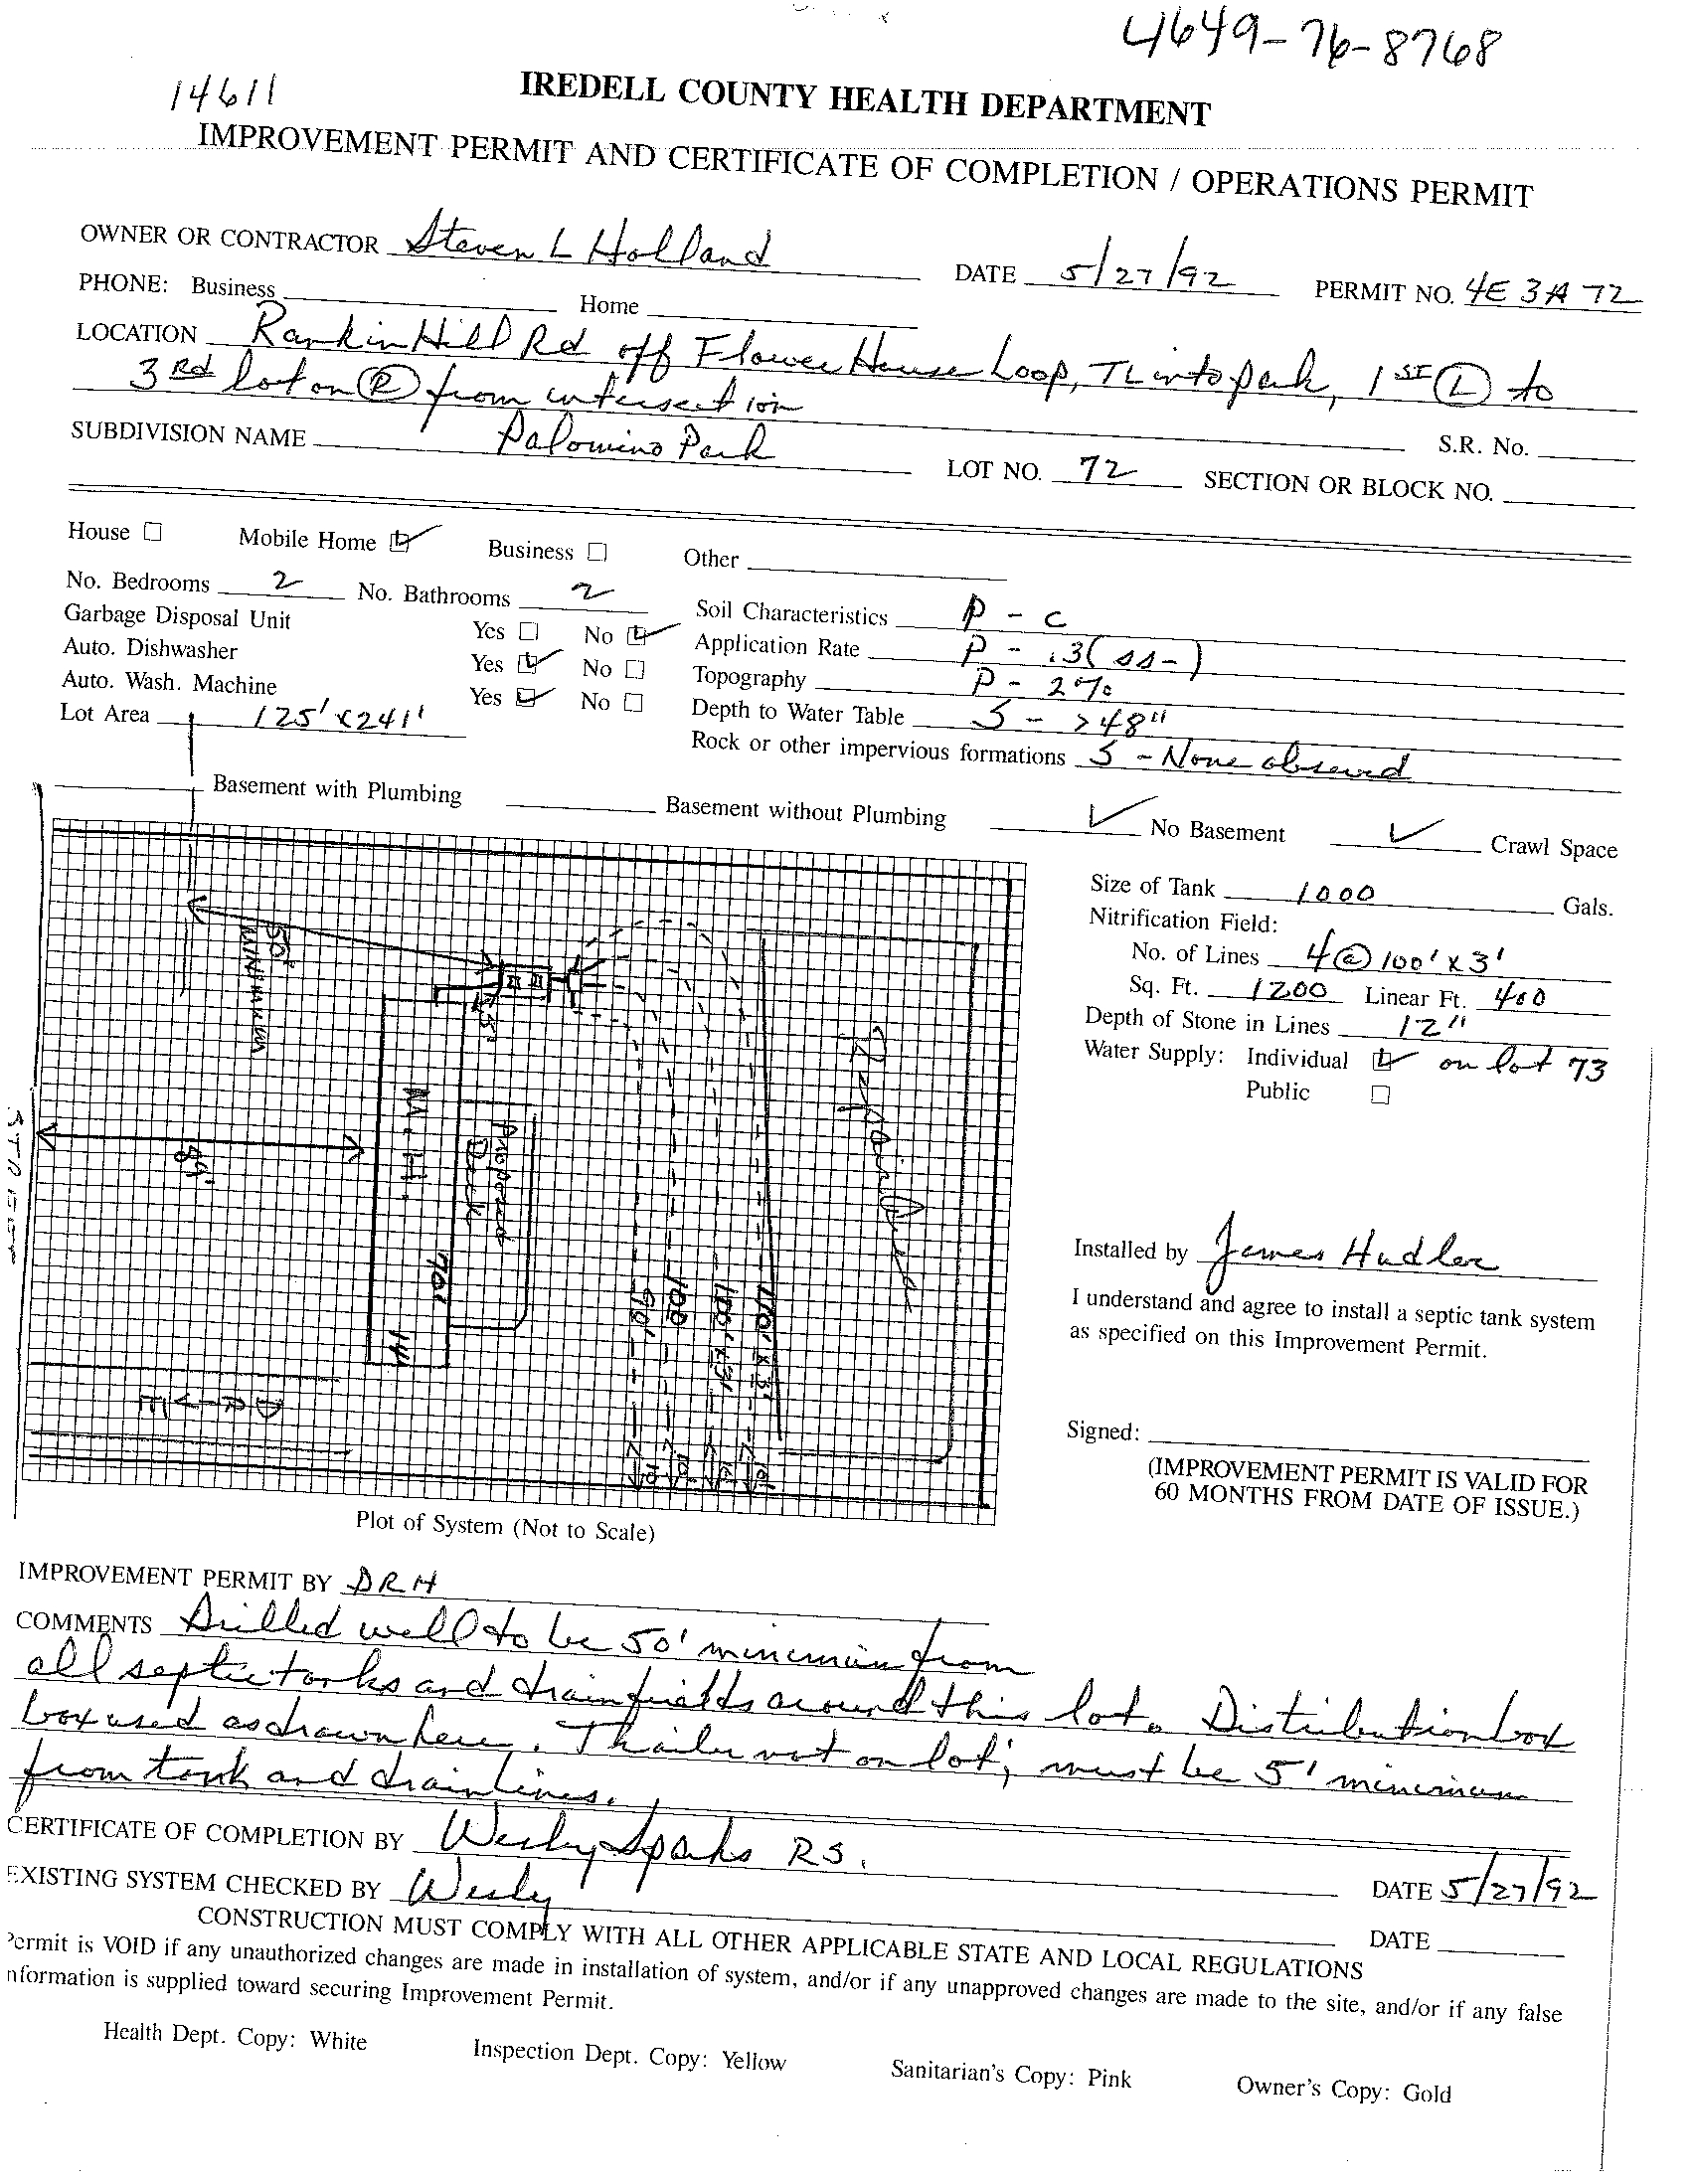 4649-76-8768
14611
IREDELL COUNTY HEALTH DEPARTMENT
IMPROVEMENT PERMIT AND CERTIFICATE OF COMPLETION / OPERATIONS PERMIT
OWNER OR CONTRACTOR Steven L Holland DATE 5/27/92 PERMIT NO. 4E 3A 72
PHONE: Business Home
LOCATION Rankin Hill Rd off Flower House Loop, TL into park, 1st (L) to
3rd lot on (R) from intersection
S.R. No.
SUBDIVISION NAME Palomino Park LOT NO. 72 SECTION OR BLOCK NO.
House □ Mobile Home ☑ Business □ Other
No. Bedrooms 2 No. Bathrooms 2 Soil Characteristics P - C
Garbage Disposal Unit Yes □ No ☑ Application Rate P - .3 (ss-)
Auto. Dishwasher Yes ☑ No □ Topography P - 2%
Auto. Wash. Machine Yes ☑ No □ Depth to Water Table S - >48"
Lot Area 125' x 241' Rock or other impervious formations S - None observed
Basement with Plumbing Basement without Plumbing ✓ No Basement ✓ Crawl Space
Size of Tank 1000 Gals.
Nitrification Field:
No. of Lines 4 @ 100' x 3'
Sq. Ft. 1200 Linear Ft. 400
Depth of Stone in Lines 12"
Water Supply: Individual ☑ on lot 73
Public □
50' MINIMUM
5'
Repair Area
STREET
89'
M.H.
Proposed Deck
70'
14'
90'
100
100' x 3'
110' x 3'
DRIVE
10'
10'
10'
10'
Installed by James Hudler
I understand and agree to install a septic tank system
as specified on this Improvement Permit.
Signed:
(IMPROVEMENT PERMIT IS VALID FOR
60 MONTHS FROM DATE OF ISSUE.)
Plot of System (Not to Scale)
IMPROVEMENT PERMIT BY DRH
COMMENTS Drilled well to be 50' minimum from
all septic tanks and drainfields around this lot. Distribution box
box used as drawn here. Trailer not on lot; must be 5' minimum
from tank and drainlines.
CERTIFICATE OF COMPLETION BY Wesley Sparks RS. DATE 5/27/92
EXISTING SYSTEM CHECKED BY Wesley DATE
CONSTRUCTION MUST COMPLY WITH ALL OTHER APPLICABLE STATE AND LOCAL REGULATIONS
Permit is VOID if any unauthorized changes are made in installation of system, and/or if any unapproved changes are made to the site, and/or if any false
nformation is supplied toward securing Improvement Permit.
Health Dept. Copy: White Inspection Dept. Copy: Yellow Sanitarian's Copy: Pink Owner's Copy: Gold